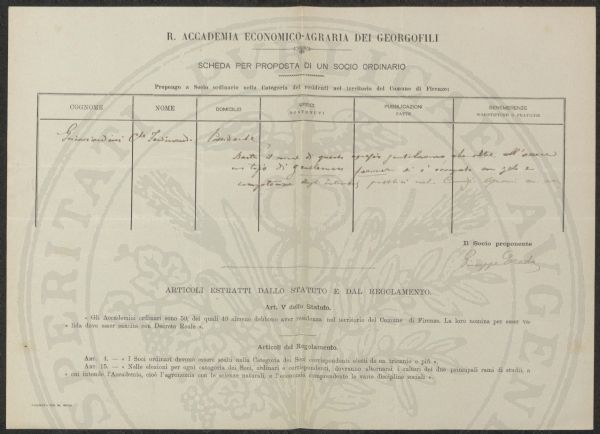 R. ACCADEMIA ECONOMICO-AGRARIA DEI GEORGOFILI
SCHEDA PER PROPOSTA DI UN SOCIO ORDINARIO
Propongo a Socio ordinario nella Categoria dei residenti nel territorio del Comune di Firenze:
COGNOME NOME DOMICILIO UFFICI SOSTENUTI PUBBLICAZIONI FATTE BENEMERENZE SCIENTIFICHE O PRATICHE
Guicciardini Cte Ferdinando Residente
Basta il nome di questo egregio gentiluomo che oltre all'essere
un tipo di gentleman farmer si è occupato con zelo e
competenza degli interessi pubblici
Il Socio proponente
Giuseppe
ARTICOLI ESTRATTI DALLO STATUTO E DAL REGOLAMENTO.
Art. V dello Statuto.
« Gli Accademici ordinari sono 50, dei quali 40 almeno debbono aver residenza nel territorio del Comune di Firenze. La loro nomina per esser va-
« lida deve esser sancita con Decreto Reale ».
Articoli del Regolamento.
ART. 4. — « I Soci ordinari devono essere scelti nella Categoria dei Soci corrispondenti eletti da un triennio o più ».
ART. 15. — « Nelle elezioni per ogni categoria dei Soci, ordinari e corrispondenti, dovranno alternarsi i cultori dei due principali rami di studii a
« cui intende l'Accademia, cioè l'agronomia con le scienze naturali, e l'economia comprendente le varie discipline sociali ».